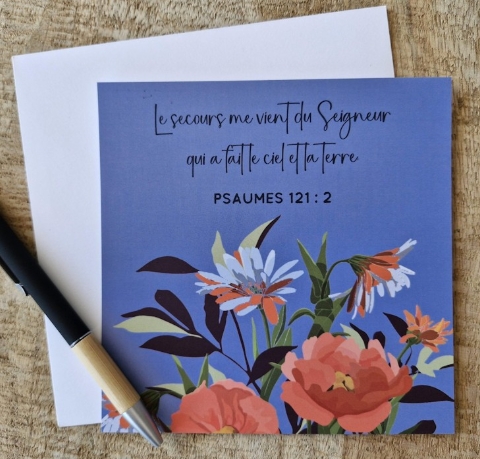 Le secours me vient du Seigneur
qui a fait le ciel et la terre
PSAUMES 121 : 2